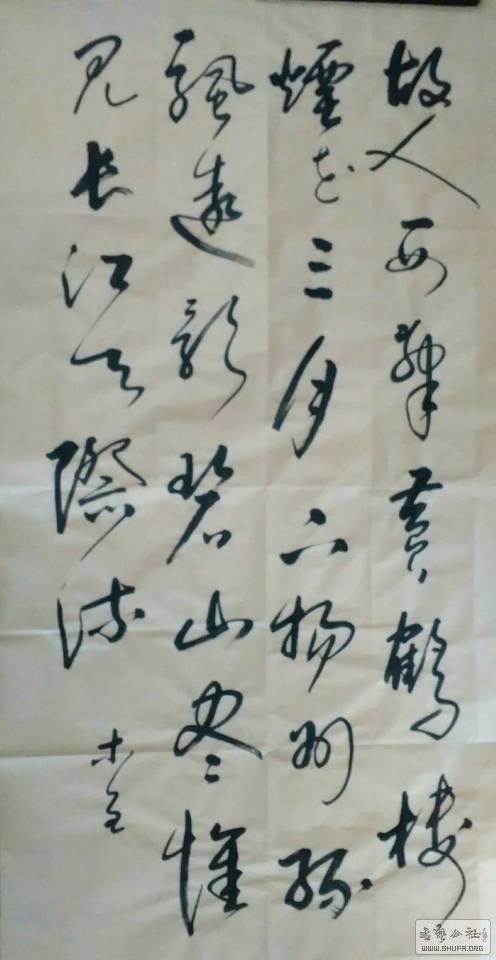 故人西辞黄鶴楼
煙花三月下揚州孤
颿遠影碧山尽惟
见长江天際流
書藝公社
WWW.SHUFA.ORG